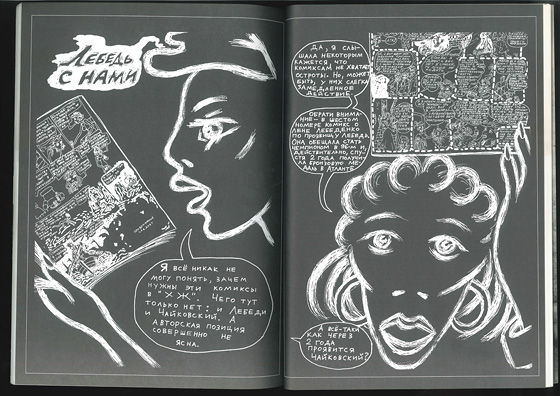 ЛЕБЕДЬ
С НАМИ
Я ВСЁ НИКАК НЕ
МОГУ ПОНЯТЬ, ЗАЧЕМ
НУЖНЫ ЭТИ КОМИКСЫ
В "ХЖ". ЧЕГО ТУТ
ТОЛЬКО НЕТ: И ЛЕБЕДИ
И ЧАЙКОВСКИЙ. А
АВТОРСКАЯ ПОЗИЦИЯ
СОВЕРШЕННО НЕ
ЯСНА.
ДА, Я СЛЫ-
ШАЛА НЕКОТОРЫМ
КАЖЕТСЯ, ЧТО
КОМИКСАМ НЕ ХВАТАЕТ
ОСТРОТЫ. НО, МОЖЕТ
БЫТЬ, У НИХ СЛЕГКА
ЗАМЕДЛЕННОЕ
ДЕЙСТВИЕ
ОБРАТИ ВНИМА-
НИЕ - В ШЕСТОМ
НОМЕРЕ КОМИКС О
ЛЕНЕ ЛЕБЕДЕНКО
ПО ПРОЗВИЩУ ЛЕБЕДЬ.
ОНА ОБЕЩАЛА СТАТЬ
ЧЕМПИОНОМ В 96-М И,
ДЕЙСТВИТЕЛЬНО, СПУ-
СТЯ 2 ГОДА ПОЛУЧИ-
ЛА БРОНЗОВУЮ МЕ-
ДАЛЬ В АТЛАНТЕ
А ВСЁ-ТАКИ
КАК ЧЕРЕЗ
2 ГОДА
ПРОЯВИТСЯ
ЧАЙКОВСКИЙ?